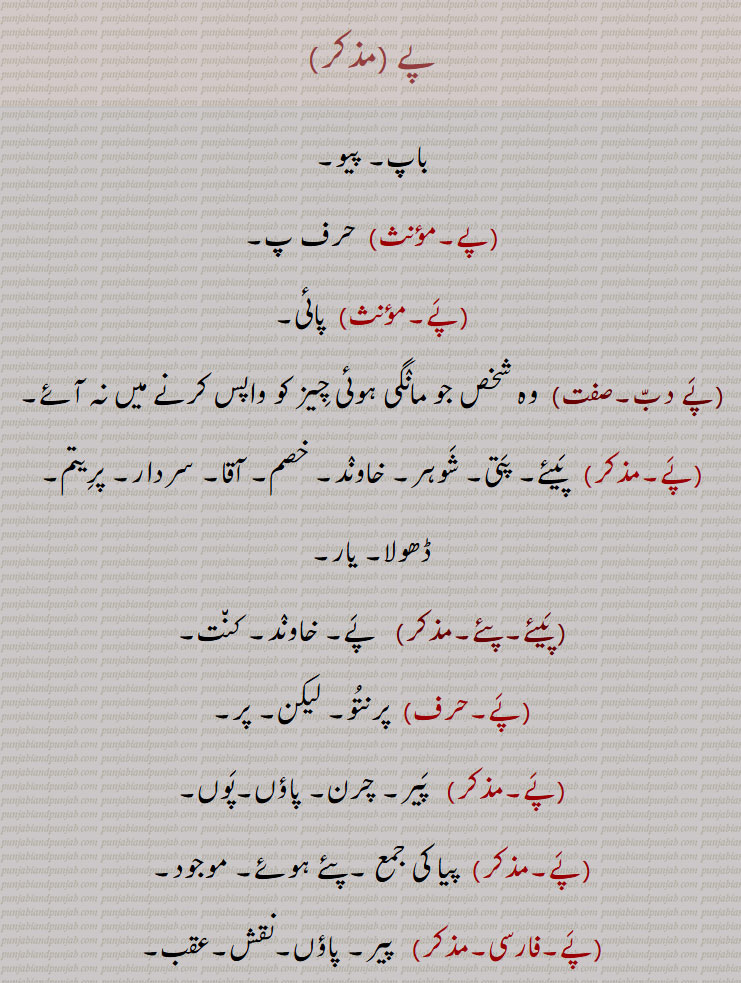 پے (مذکر)
باپ۔ پیو۔
(پے۔مؤنث) حرف پ۔
(پَے۔مؤنث) پائیٔ۔
(پَے دبّ۔صفت) وہ شخص جو مانگی ہوئی چِیز کو واپس کرنے میں نہ آئے۔
(پَے۔مذکر) پَیئے۔ پَتی۔ شَوہر۔ خاوند۔ خصم۔ آقا۔ سردار۔ پرِیتم۔
ڈھولا۔ یار۔
(پَیئے۔پئے۔مذکر) پَے۔ خاوند۔ کنّت۔
(پَے۔حرف) پرنتُو۔ لیکن۔ پر۔
(پَے۔مذکر) پَیر۔ چرن۔ پاؤں۔پَوں۔
(پَے۔مذکر) پیا کی جمع ۔پئے ہوئے۔ موجود۔
(پَے۔فارسی۔مذکر) پیر۔ پاؤں۔نقش۔عقب۔